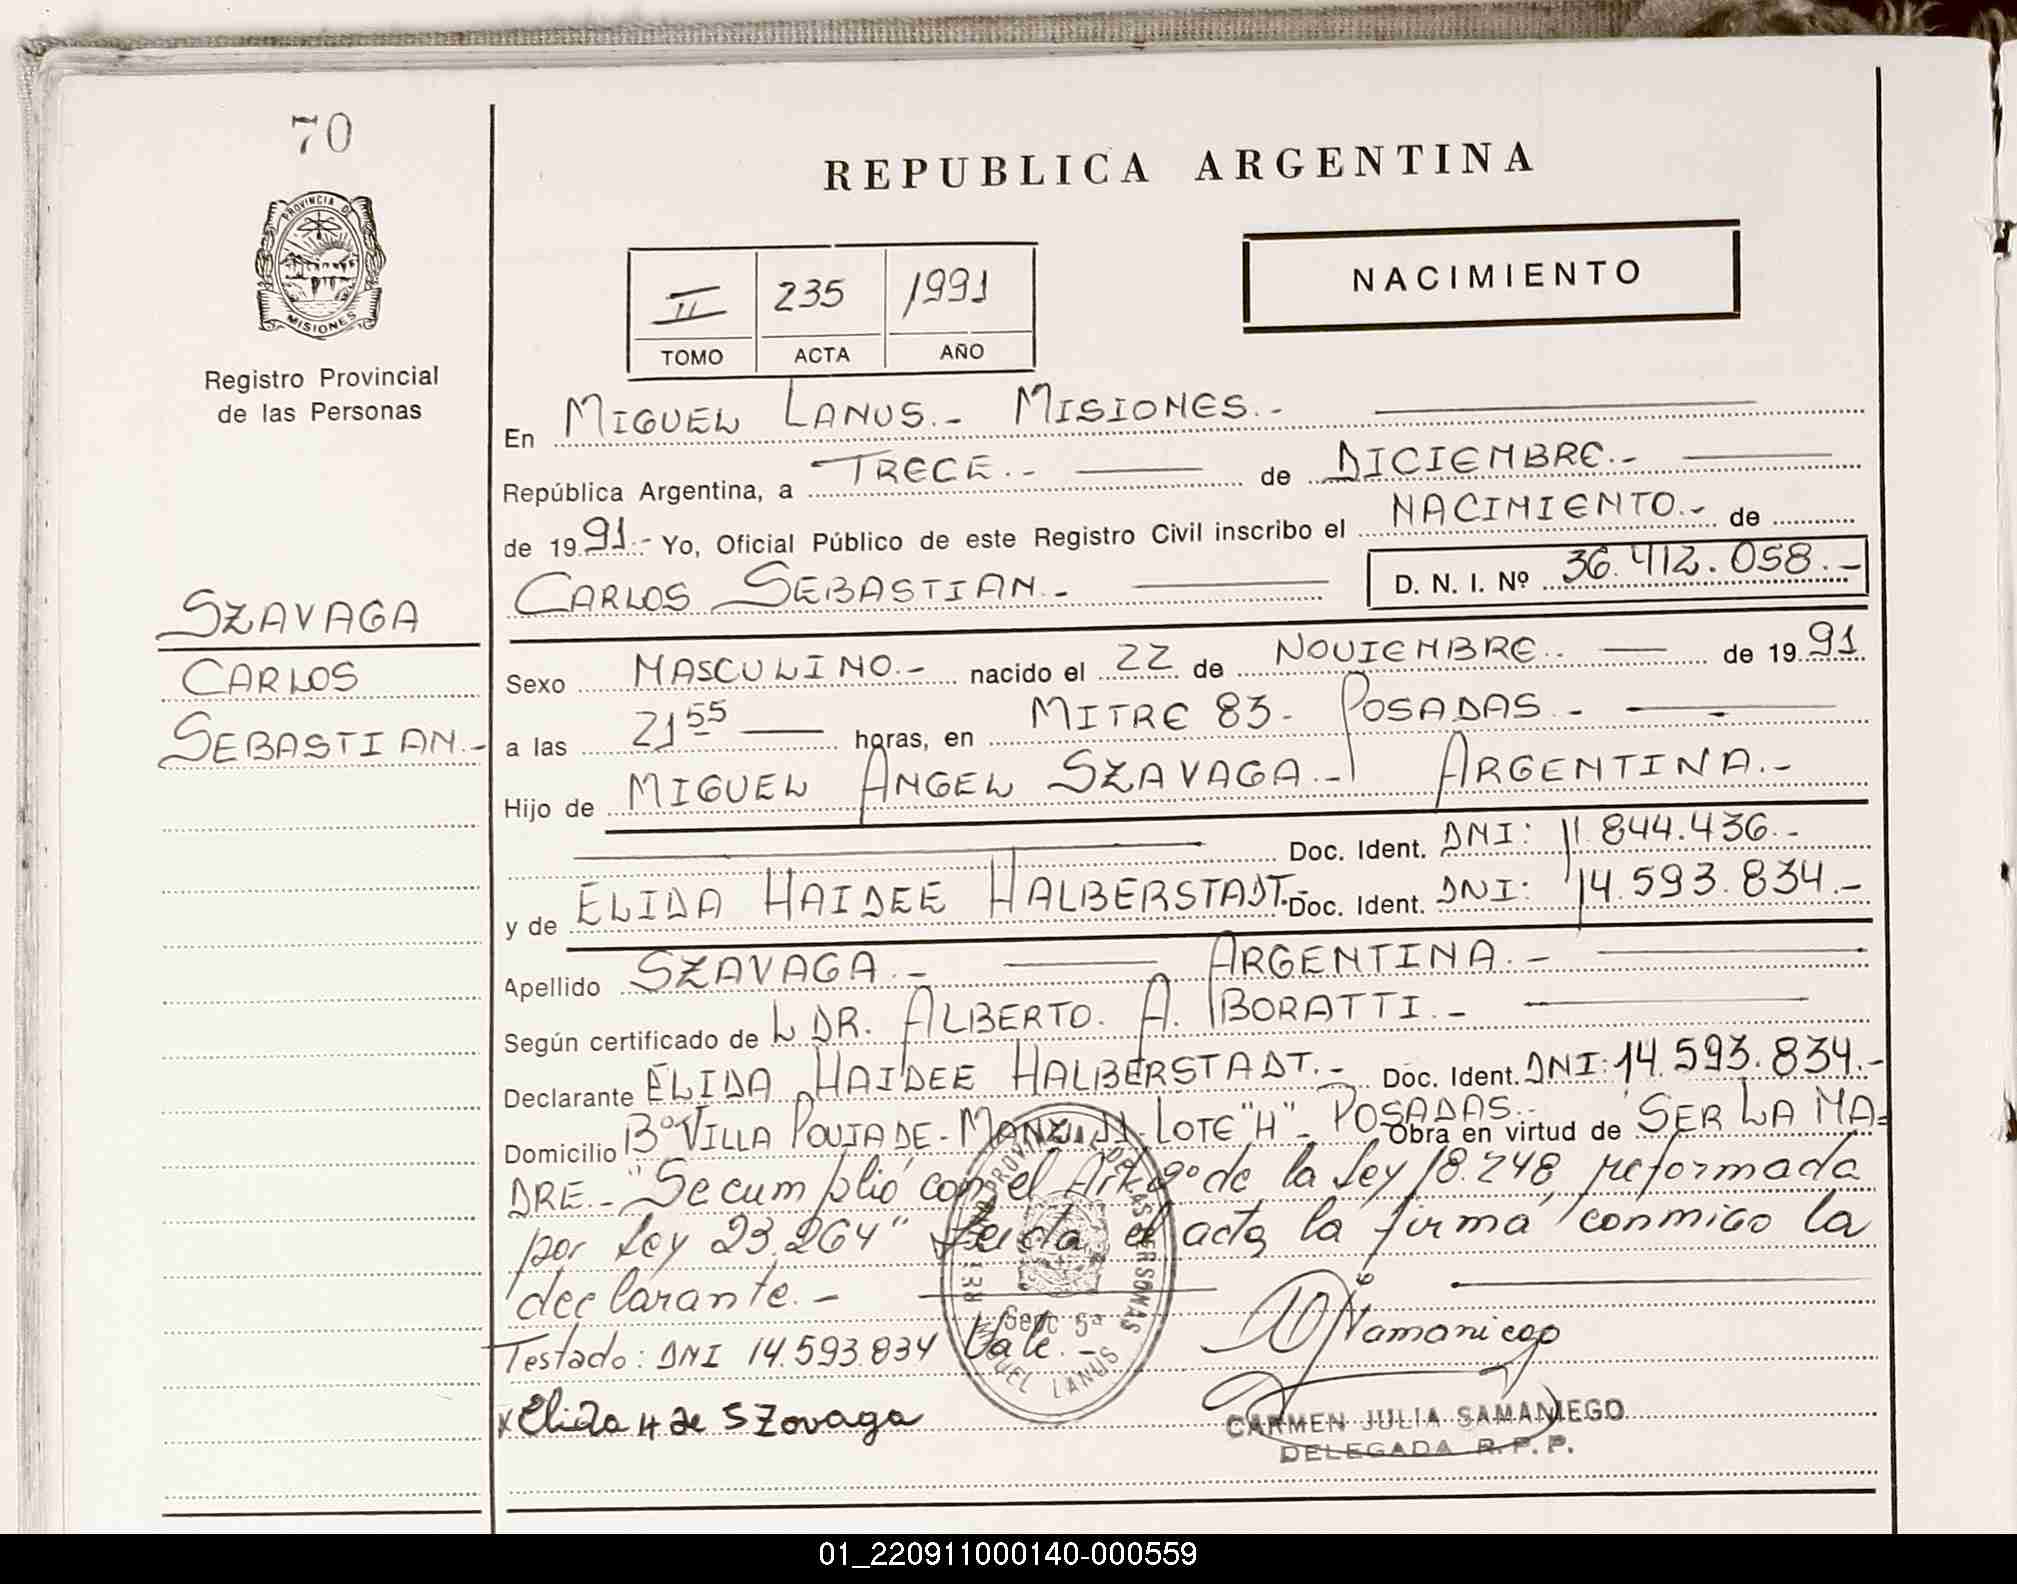 70
PROVINCIA DE
MISIONES
Registro Provincial
de las Personas
SZAVAGA
CARLOS
SEBASTIAN.-
REPUBLICA ARGENTINA
NACIMIENTO
II 235 1991
TOMO ACTA AÑO
En MIGUEL LANUS.- MISIONES.-
República Argentina, a TRECE.- de DICIEMBRE.-
de 1991.- Yo, Oficial Público de este Registro Civil inscribo el NACIMIENTO.- de
CARLOS SEBASTIAN.- D. N. I. Nº 36.412.058.-
Sexo MASCULINO.- nacido el 22 de NOVIEMBRE.- de 1991
a las 21 55 horas, en MITRE 83- POSADAS.-
Hijo de MIGUEL ANGEL SZAVAGA.- ARGENTINA.-
Doc. Ident. DNI: 11.844.436.-
y de ELIDA HAIDEE HALBERSTADT.- Doc. Ident. DNI: 14.593.834.-
Apellido SZAVAGA.- ARGENTINA.-
Según certificado de L DR. ALBERTO. A. BORATTI.-
Declarante ELIDA HAIDEE HALBERSTADT.- Doc. Ident. DNI: 14.593.834.-
Domicilio Bº VILLA POUJADE- LOTE "H"- POSADAS.- Obra en virtud de SER LA MA=
DRE.- "Se cumplió con el de la ley 18.248, reformada
por ley 23.264" el acta, la firma conmigo la
declarante.-
Testado: DNI 14.593.834 Vale.-
Secc 5ª
MIGUEL LANUS
x Elida H de Szovaga
CARMEN JULIA SAMANIEGO
DELEGADA R. P. P.
01_220911000140-000559